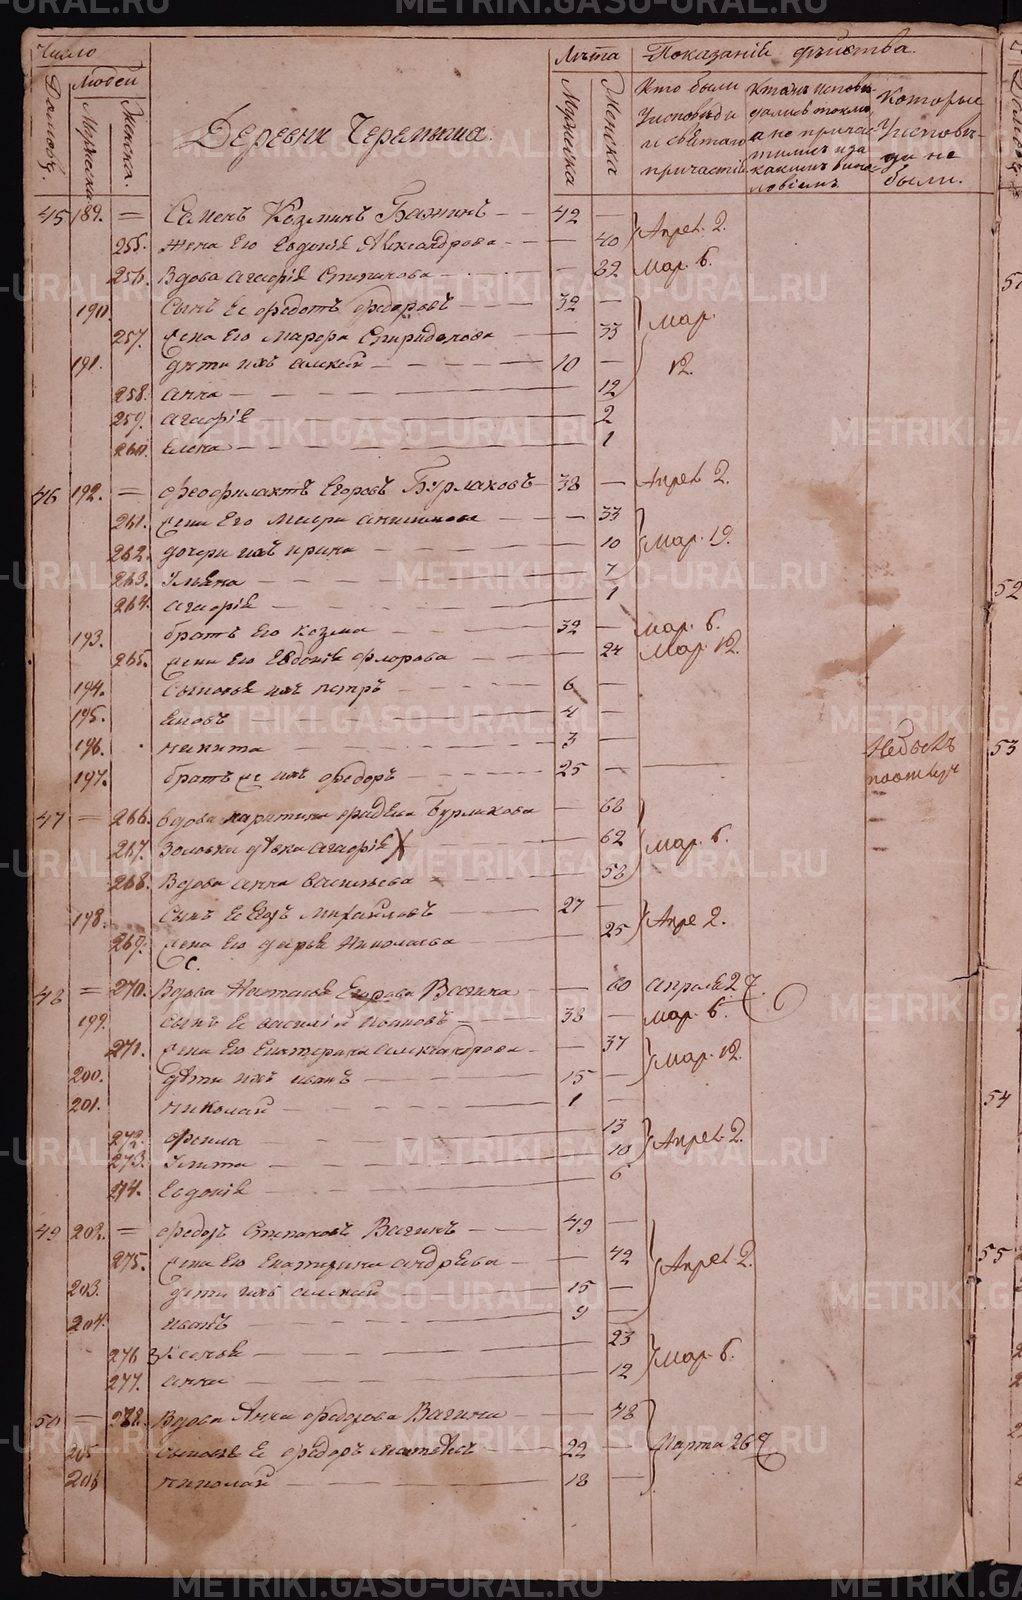 Число
Людей
Домовъ.
Мужеска
Женска.
Деревни Черемыша.
Лѣта
Мужеска
Женска
Показаній дѣйства.
Кто были у исповѣди и святаго причастія
Кто исповѣдались токмо а не причастились и за какимъ виносло­віемъ
Которые у исповѣди не были.
45 189. = Семенъ Козминъ Бажинъ 42 — Апрел. 2.
255. жена Его Евдокія Александрова — 40
256. Вдова Агафія — 62 Мар. 6.
190. Сынъ Ее Федотъ Федоровъ 32 — Мар. 12.
257. жена Его Марфа Спиридонова — 33
191. дѣти ихъ Алексѣй 10 —
258. Анна 12
259. Агафія 2
260. Елена 1
46 192. = Феофилактъ Егоровъ Бурлаковъ 38 — Апрел. 2.
261. жена Его Марія — 33 Мар. 19.
262. дочери ихъ Ирина 10
263. Ульяна 7
264. Агафія 1
193. братъ Его Козма 32 — Мар. 6.
265. жена Его Евдокія Флорова — 24 Мар. 12.
194. Сыновья ихъ Петръ 6 —
195. Іаковъ 4 —
196. Никита 3 —
197. братъ же ихъ Федоръ 25 — Небылъ
47 = 266. Вдова Бурлакова — 68 Мар. 6.
267. Золовка дѣвка Агафія — 62
268. Вдова Анна Васильева — 58
198. Сынъ Ее Михайловъ 27 — Апре 2.
269. жена Его Дарья Николаева — 25
48 = 270. Вдова Наталья Егорова Вагина — 60 Апреля 27.
199. Сынъ Ее Василій Ивановъ 38 — Мар. 6.
271. жена Его Екатерина Александрова — 37 Мар. 12.
200. дѣти ихъ Иванъ 15 —
201. Николай 1 —
272. Фекла 13 Апрел. 2.
273. Улита 10
274. Евдокія 6
49 202. = Федоръ Степановъ Вагинъ 49 — Апрел 2.
275. жена Его Екатерина Андрѣева — 42
203. дѣти ихъ Алексѣй 15 —
204. Иванъ 9 —
276 Ксенья 23 Мар. 6.
277. Анна 12
50 = 278. Вдова Анна Федорова Вагина — 48 Марта 26
205 Сыновья Ее Федоръ 22 —
206 Николай 18 —
51
52
53
54
55
METRIKI.GASO-URAL.RU